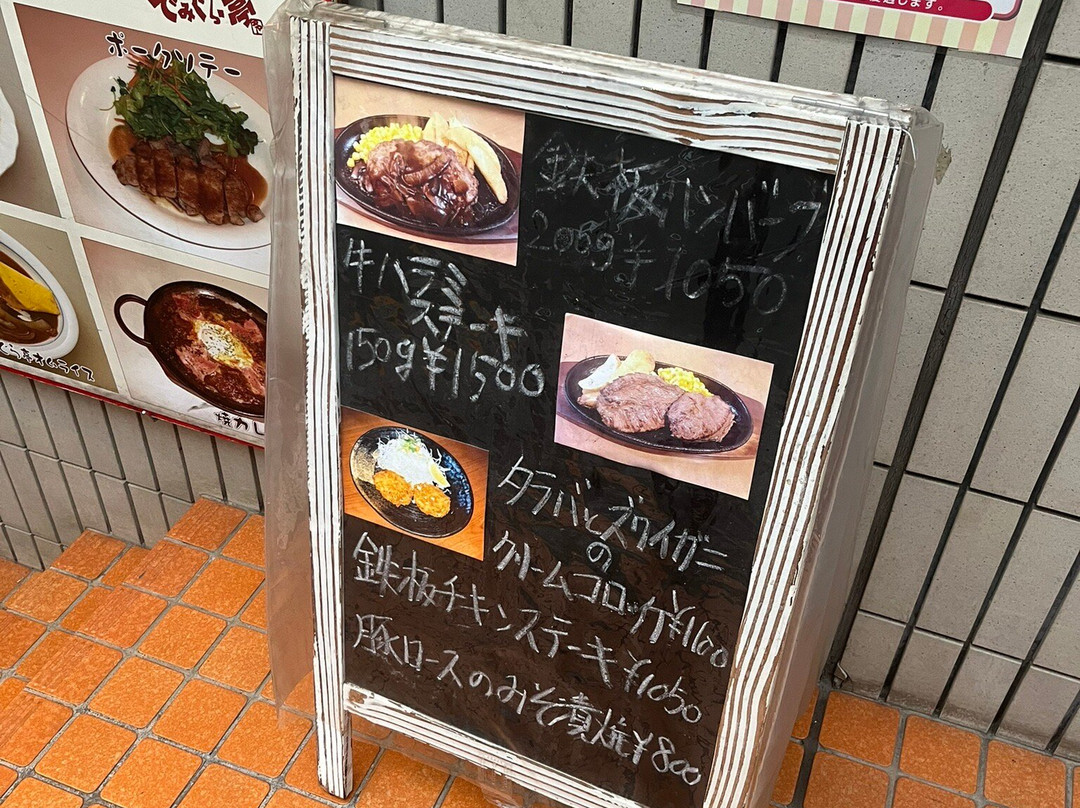 ポークソテー
焼カレ
鉄板ハンバーグ
200g ¥1050
牛ハラミ
ステーキ
150g ¥1500
タラバとズワイガニ
の
クリームコロッケ ¥1100
鉄板チキンステーキ ¥1050
豚ロースのみそ漬焼 ¥800